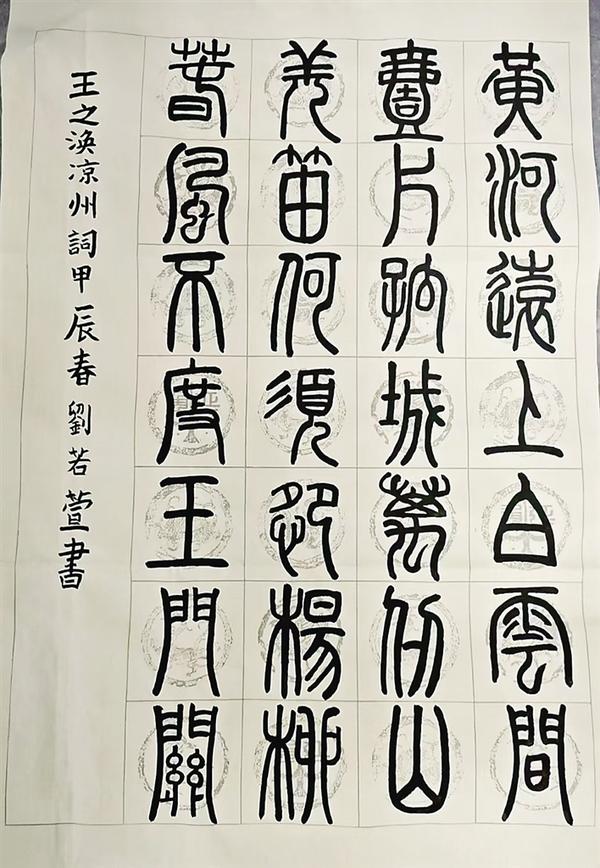 黃河遠上白雲間
壹片孤城萬仞山
羌笛何須怨楊柳
春風不度玉門關
王之渙凉州詞甲辰春劉若萱書